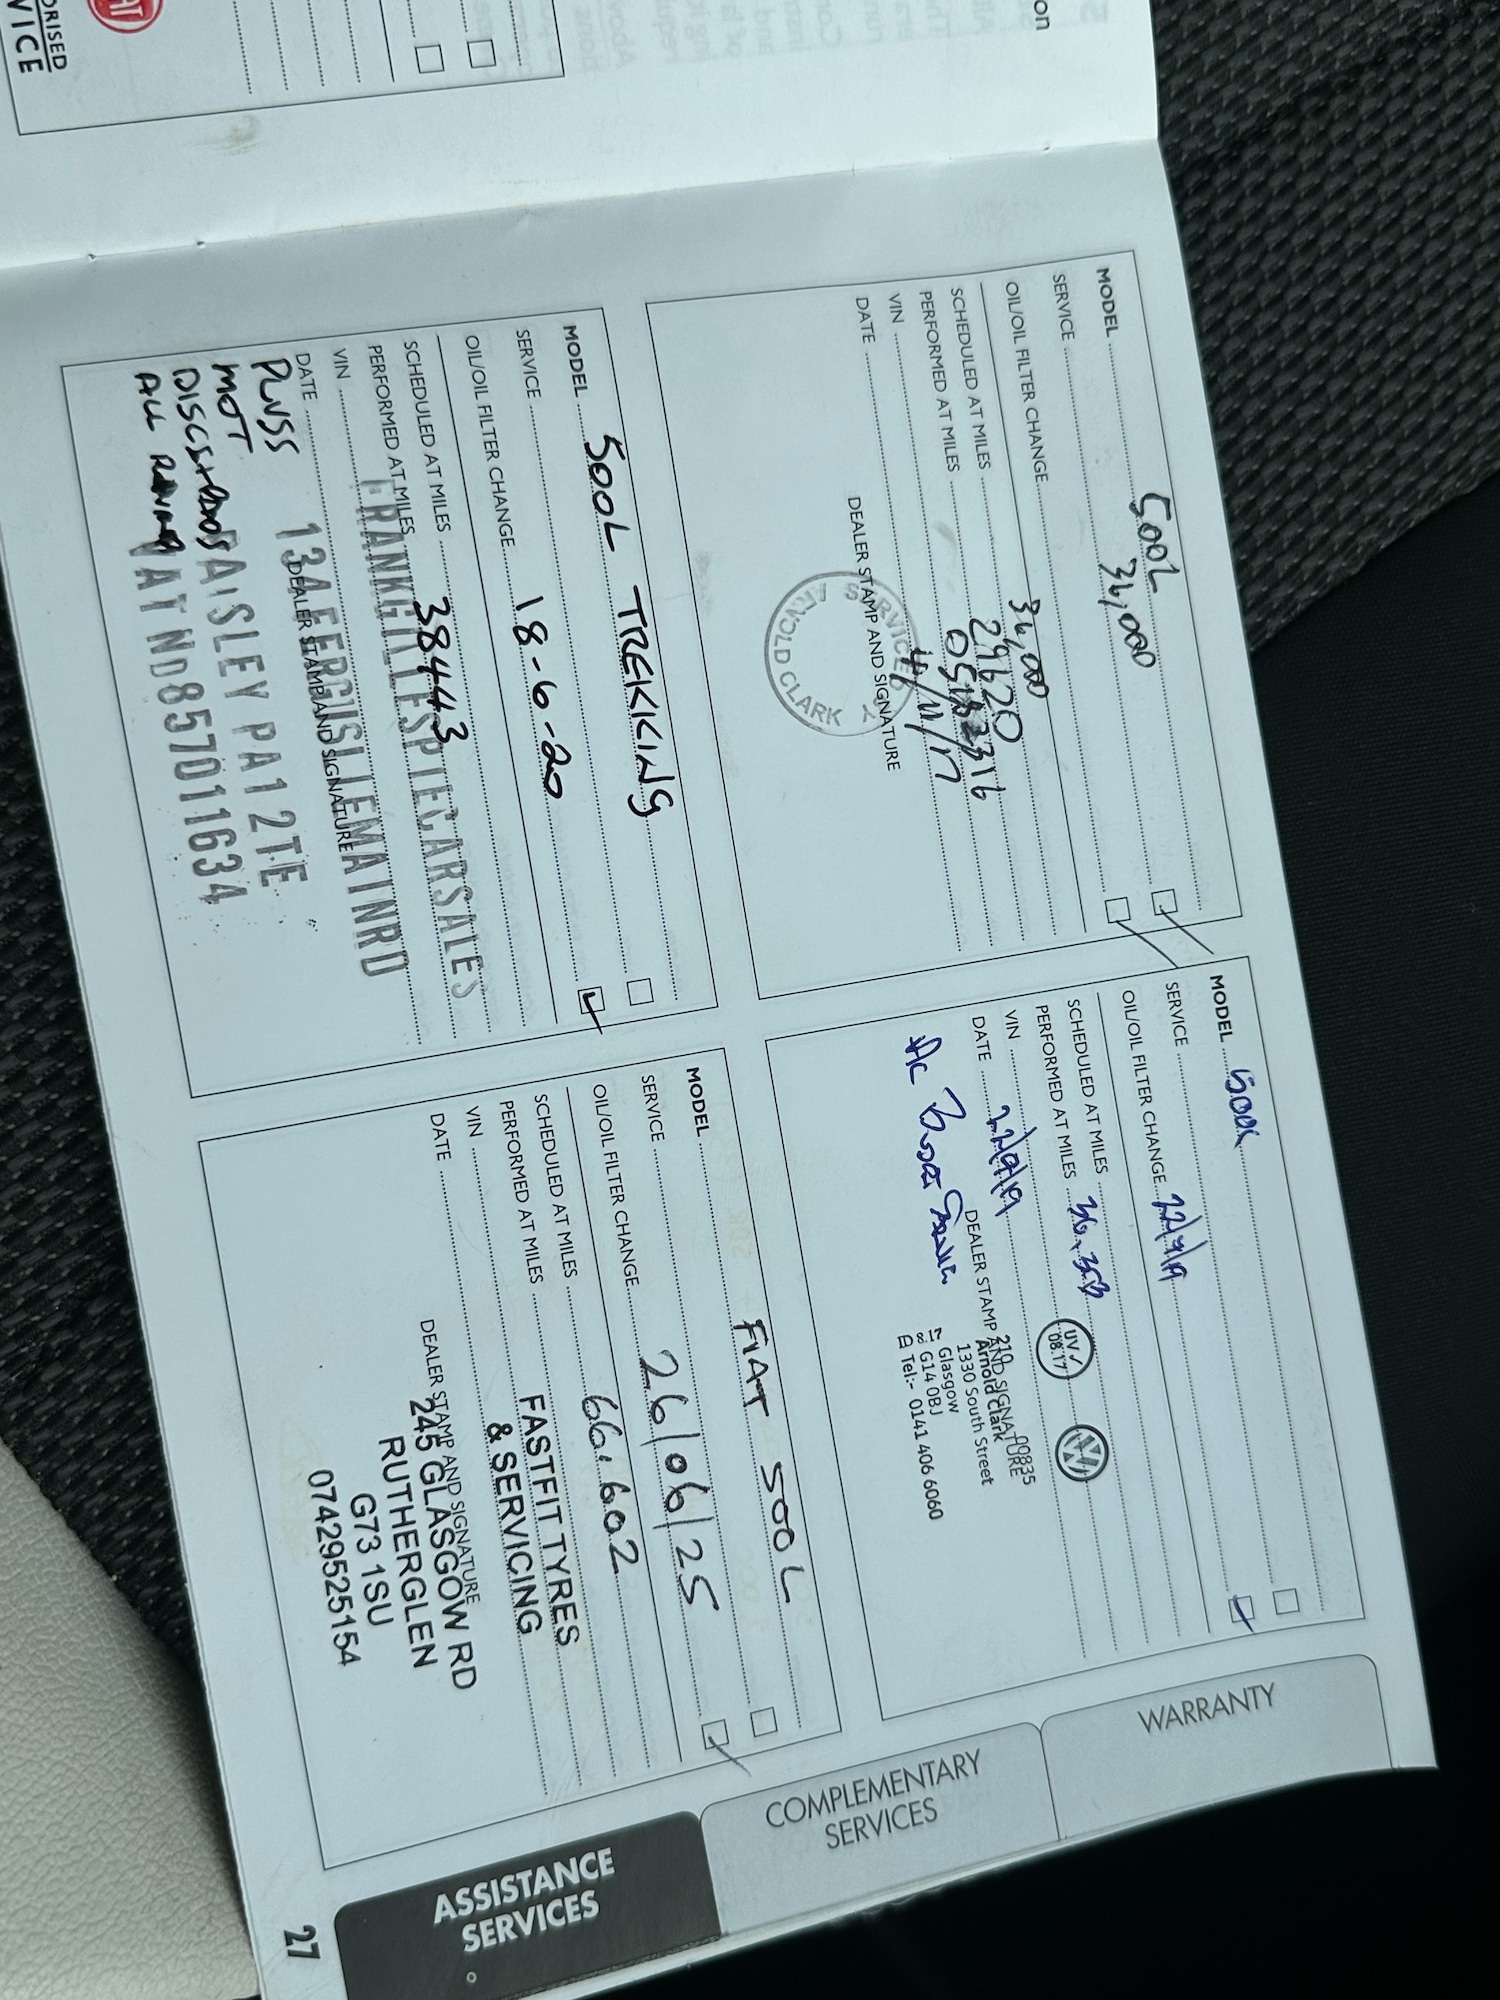 on
ORISED
VICE
MODEL 500L
SERVICE 36,000
OIL/OIL FILTER CHANGE
SCHEDULED AT MILES 36,000
PERFORMED AT MILES 29620
VIN
DATE 4/11/17
DEALER STAMP AND SIGNATURE
SERVICES
ARNOLD CLARK
MODEL 500L
SERVICE
OIL/OIL FILTER CHANGE 22/9/19
SCHEDULED AT MILES
PERFORMED AT MILES 36,353
VIN
DATE 22/9/19
DEALER STAMP AND SIGNATURE
UV✓
08.17
210 00835
Arnold Clark
1330 South Street
Glasgow
8.17 G14 0BJ
Tel:- 0141 406 6060
MODEL 500L TREKKING
SERVICE
OIL/OIL FILTER CHANGE 18-6-20
SCHEDULED AT MILES
PERFORMED AT MILES 38443
VIN
DATE
DEALER STAMP AND SIGNATURE
FRANKGILLESPIECARSALES
13AFERGUSLIEMAINRD
PAISLEY PA1 2TE
VAT NO857011634
PLUSS
MOT
DISCS+PADS
ALL ROUND
MODEL FIAT 500L
SERVICE
OIL/OIL FILTER CHANGE 26/06/25
SCHEDULED AT MILES 66,602
PERFORMED AT MILES
VIN
DATE
DEALER STAMP AND SIGNATURE
FASTFIT TYRES
& SERVICING
245 GLASGOW RD
RUTHERGLEN
G73 1SU
07429525154
WARRANTY
COMPLEMENTARY
SERVICES
ASSISTANCE
SERVICES
27